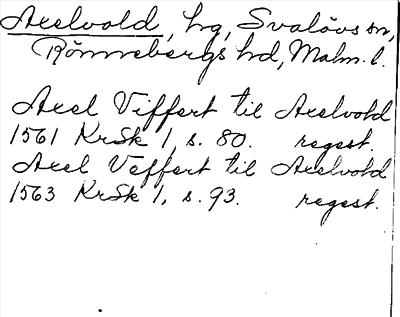 Axelvold, hg, Svalövs sn,
Rönnebergs hd, Malm. l.
Axel Viffert til Axelvold
1561 KrSk 1, s. 80. regest.
Axel Veffert til Axelvold
1563 KrSk 1, s. 93. regest.